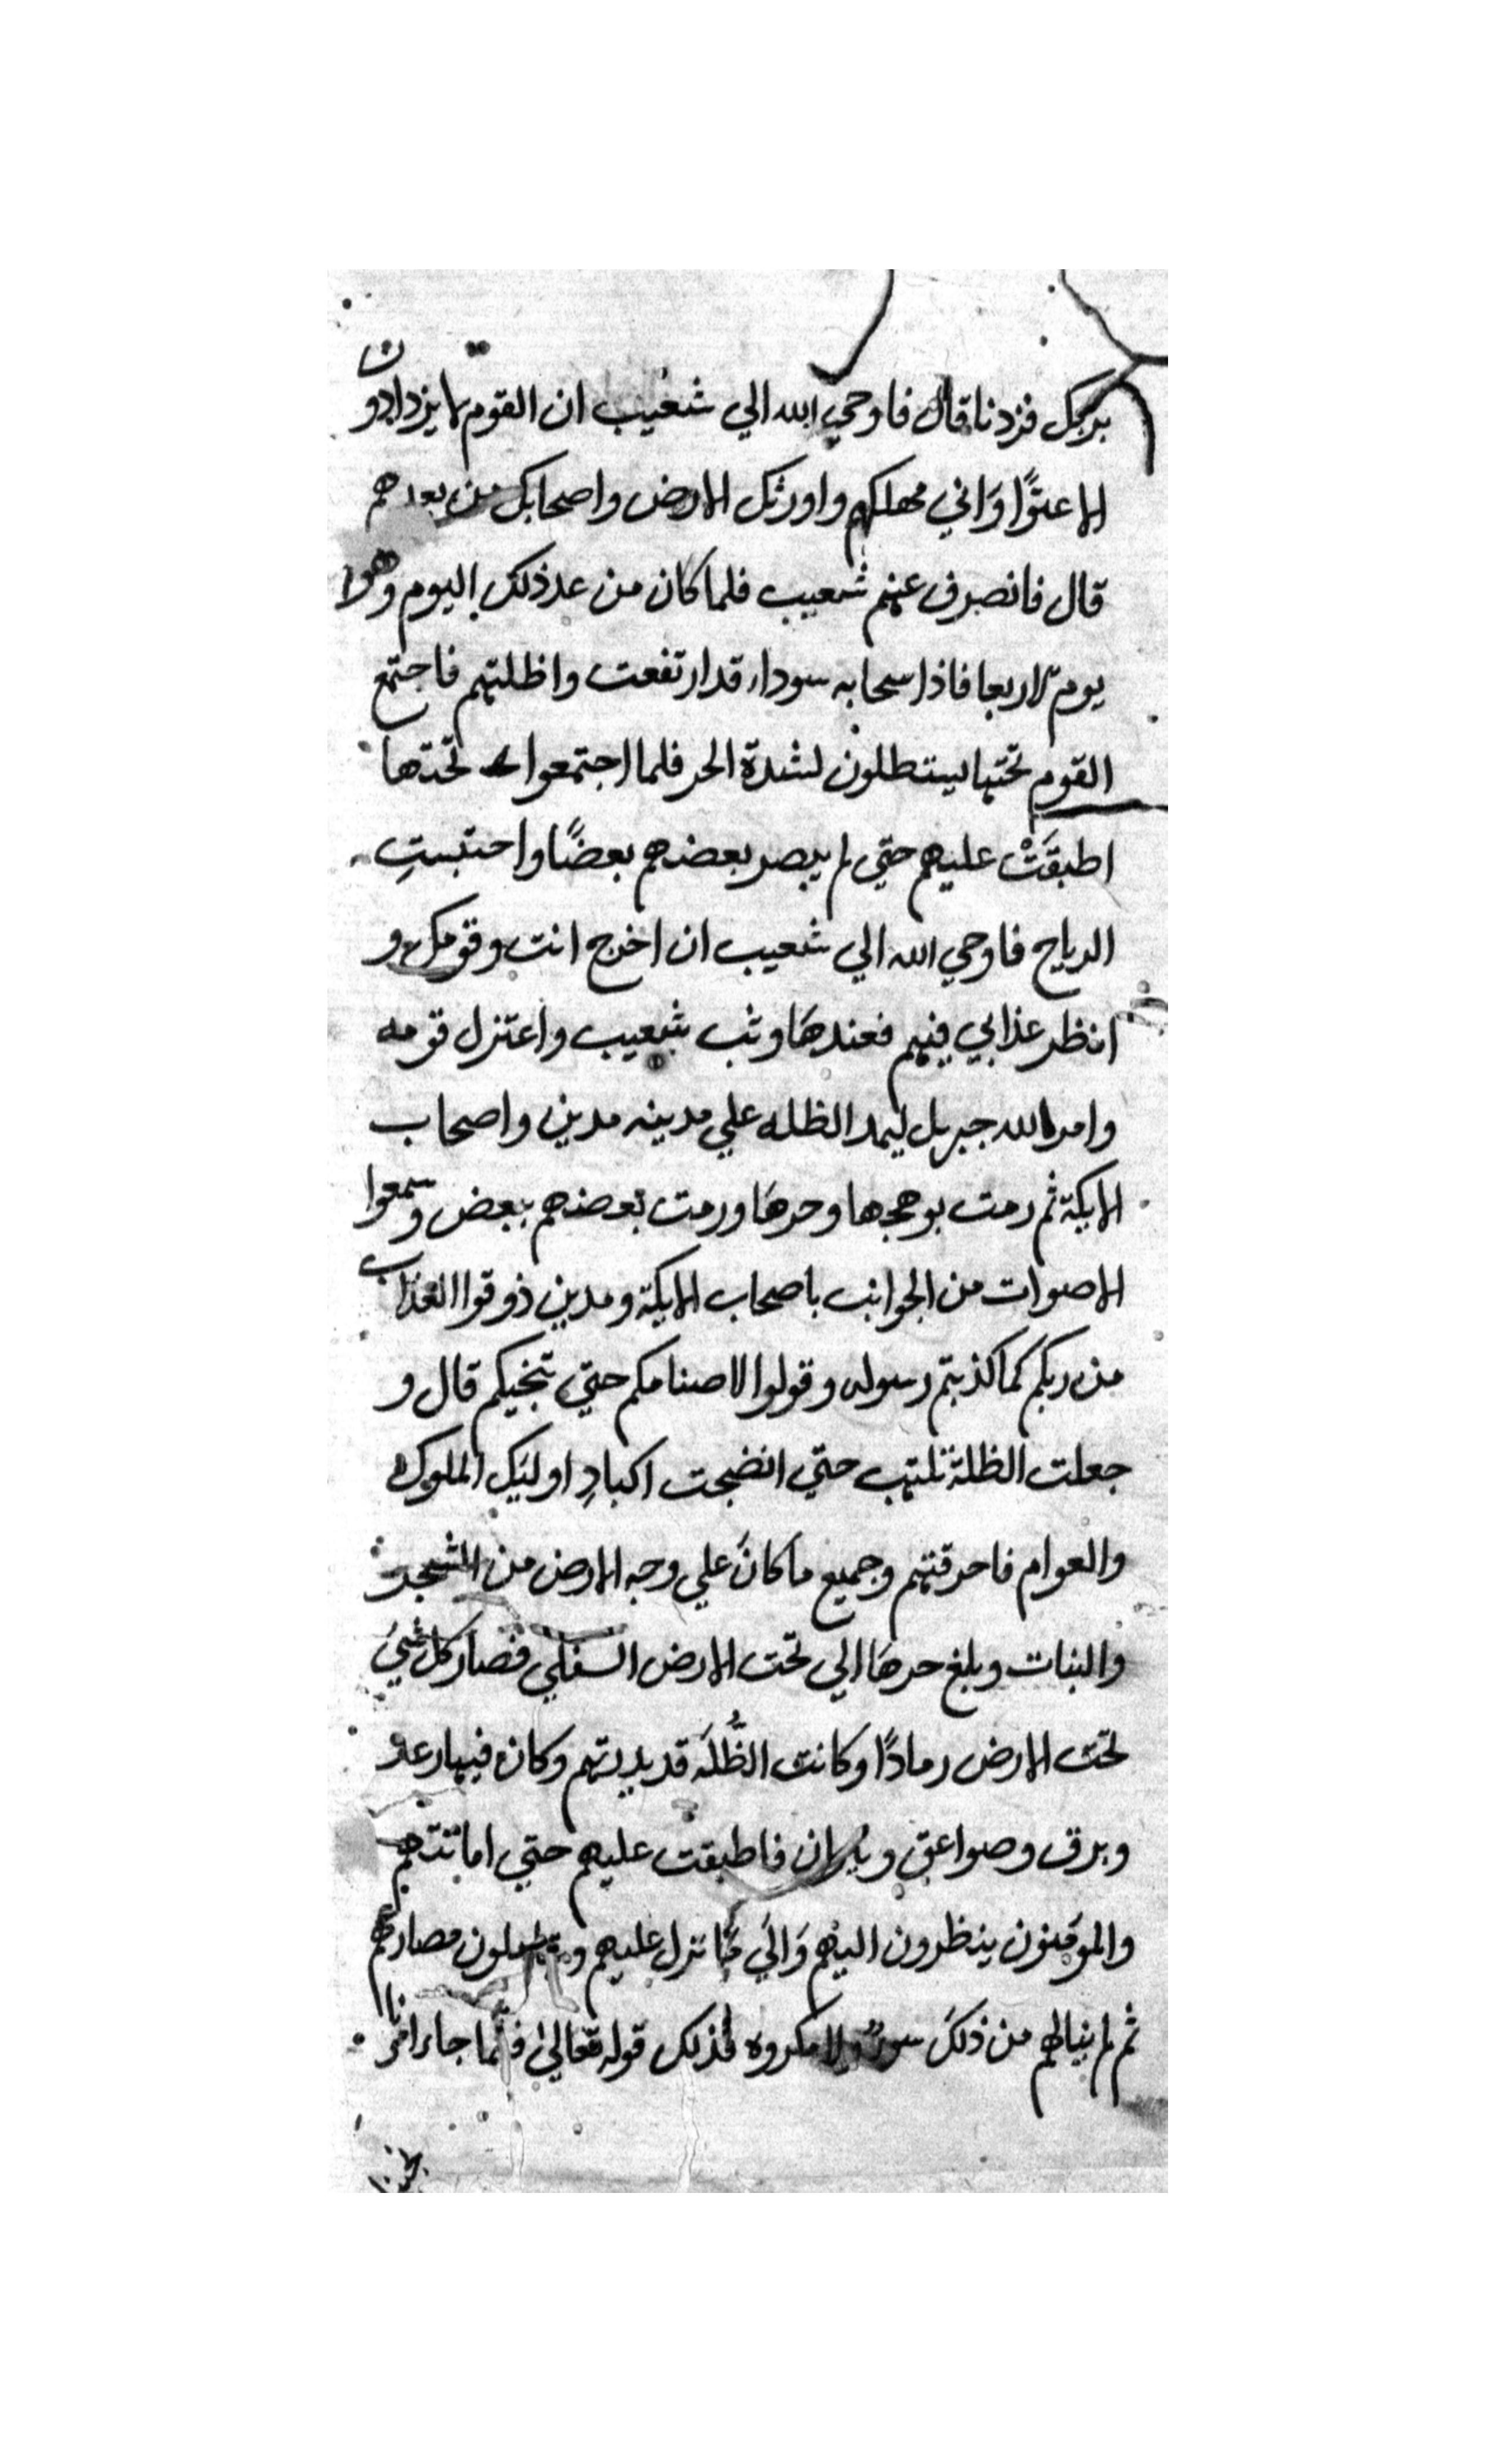 بربك فزدنا قال فاوحي الله الي شعيب ان القوم لا يزدادون
الا عتوًا وَاني مهلكهم واورثك الارض واصحابك من بعدهم
قال فانصرف عنهم شعيب فلما كان من غد ذلك اليوم وهوا
يوم الاربعا فاذا سحابه سوداء قد ارتفعت واظلتهم فاجتمع
القوم تحتها ليستطلون لشدة الحر فلما اجتمعوا تحتها
اطبقَتْ عليهم حتي لم يبصر بعضهم بعضًا واحتبستِ
الرياح فاوحي الله الي شعيب ان اخرج انت وقومك و
انظر عذابي فيهم فعندهَا وثب شعيب واعتزل قومه
وامر الله جبريل ليمد الظله علي مدينه مدين واصحاب
الايكة ثم رمت بوهجها وحرهَا ورمت بعضهم ببعض وسمعوا
الاصوات من الجوانب باصحاب الايكة ومدين ذوقوا العذاب
من ربكم كما كذبتم رسوله وقولوا لاصنامكم حتي تنجيكم قال و
جعلت الظلة تلتهب حتي انضجت اكبادِ اوليَك الملوك
والعوام فاحرقتهم وجميع ما كانَ علي وجه الارض من الشجر
والنبات وبلغ حرهَا الي تحت الارض السفلي فصارَ كل شيَ
تحت الارض رمادًا وكانت الظُّلَه قد بديتهم وكان فيها رعد
وبرق وصواعق ونيران فاطبقت عليهم حتي اماتتهم
والموَمنون ينظرون اليهم وَالَي مَا نزل عليهم مصارعهم
ثم لم ينالهم من ذلكَ سوٌ ولا مكروه فذلك قوله تعالي فلمّا جاء امرنا